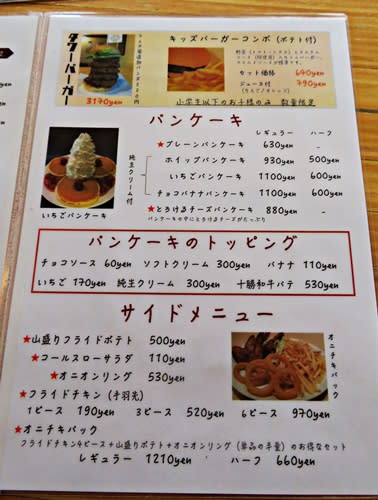 タワーバーガー
3170yen
キッズバーガーコンボ(ポテト付)
セット価格 640yen
ジュース付 790yen
小学生以下のお子様のみ 数量限定
パンケーキ
純生クリーム付
いちごパンケーキ
レギュラー ハーフ
★プレーンパンケーキ 630yen -
ホイップパンケーキ 930yen 500yen
いちごパンケーキ 1100yen 600yen
チョコバナナパンケーキ 1100yen 600yen
★とろけるチーズパンケーキ 880yen -
パンケーキの中にとろけるチーズがたっぷり
パンケーキのトッピング
チョコソース 60yen ソフトクリーム 300yen バナナ 110yen
いちご 170yen 純生クリーム 300yen 十勝和牛パテ 530yen
サイドメニュー
★山盛りフライドポテト 500yen
★コールスローサラダ 110yen
★オニオンリング 530yen
★フライドチキン(手羽元)
1ピース 190yen 3ピース 520yen 6ピース 970yen
オニチキパック
★オニチキパック
フライドチキン4ピース+山盛りポテト+オニオンリング(単品の半量)のお得なセット
レギュラー 1210yen ハーフ 660yen